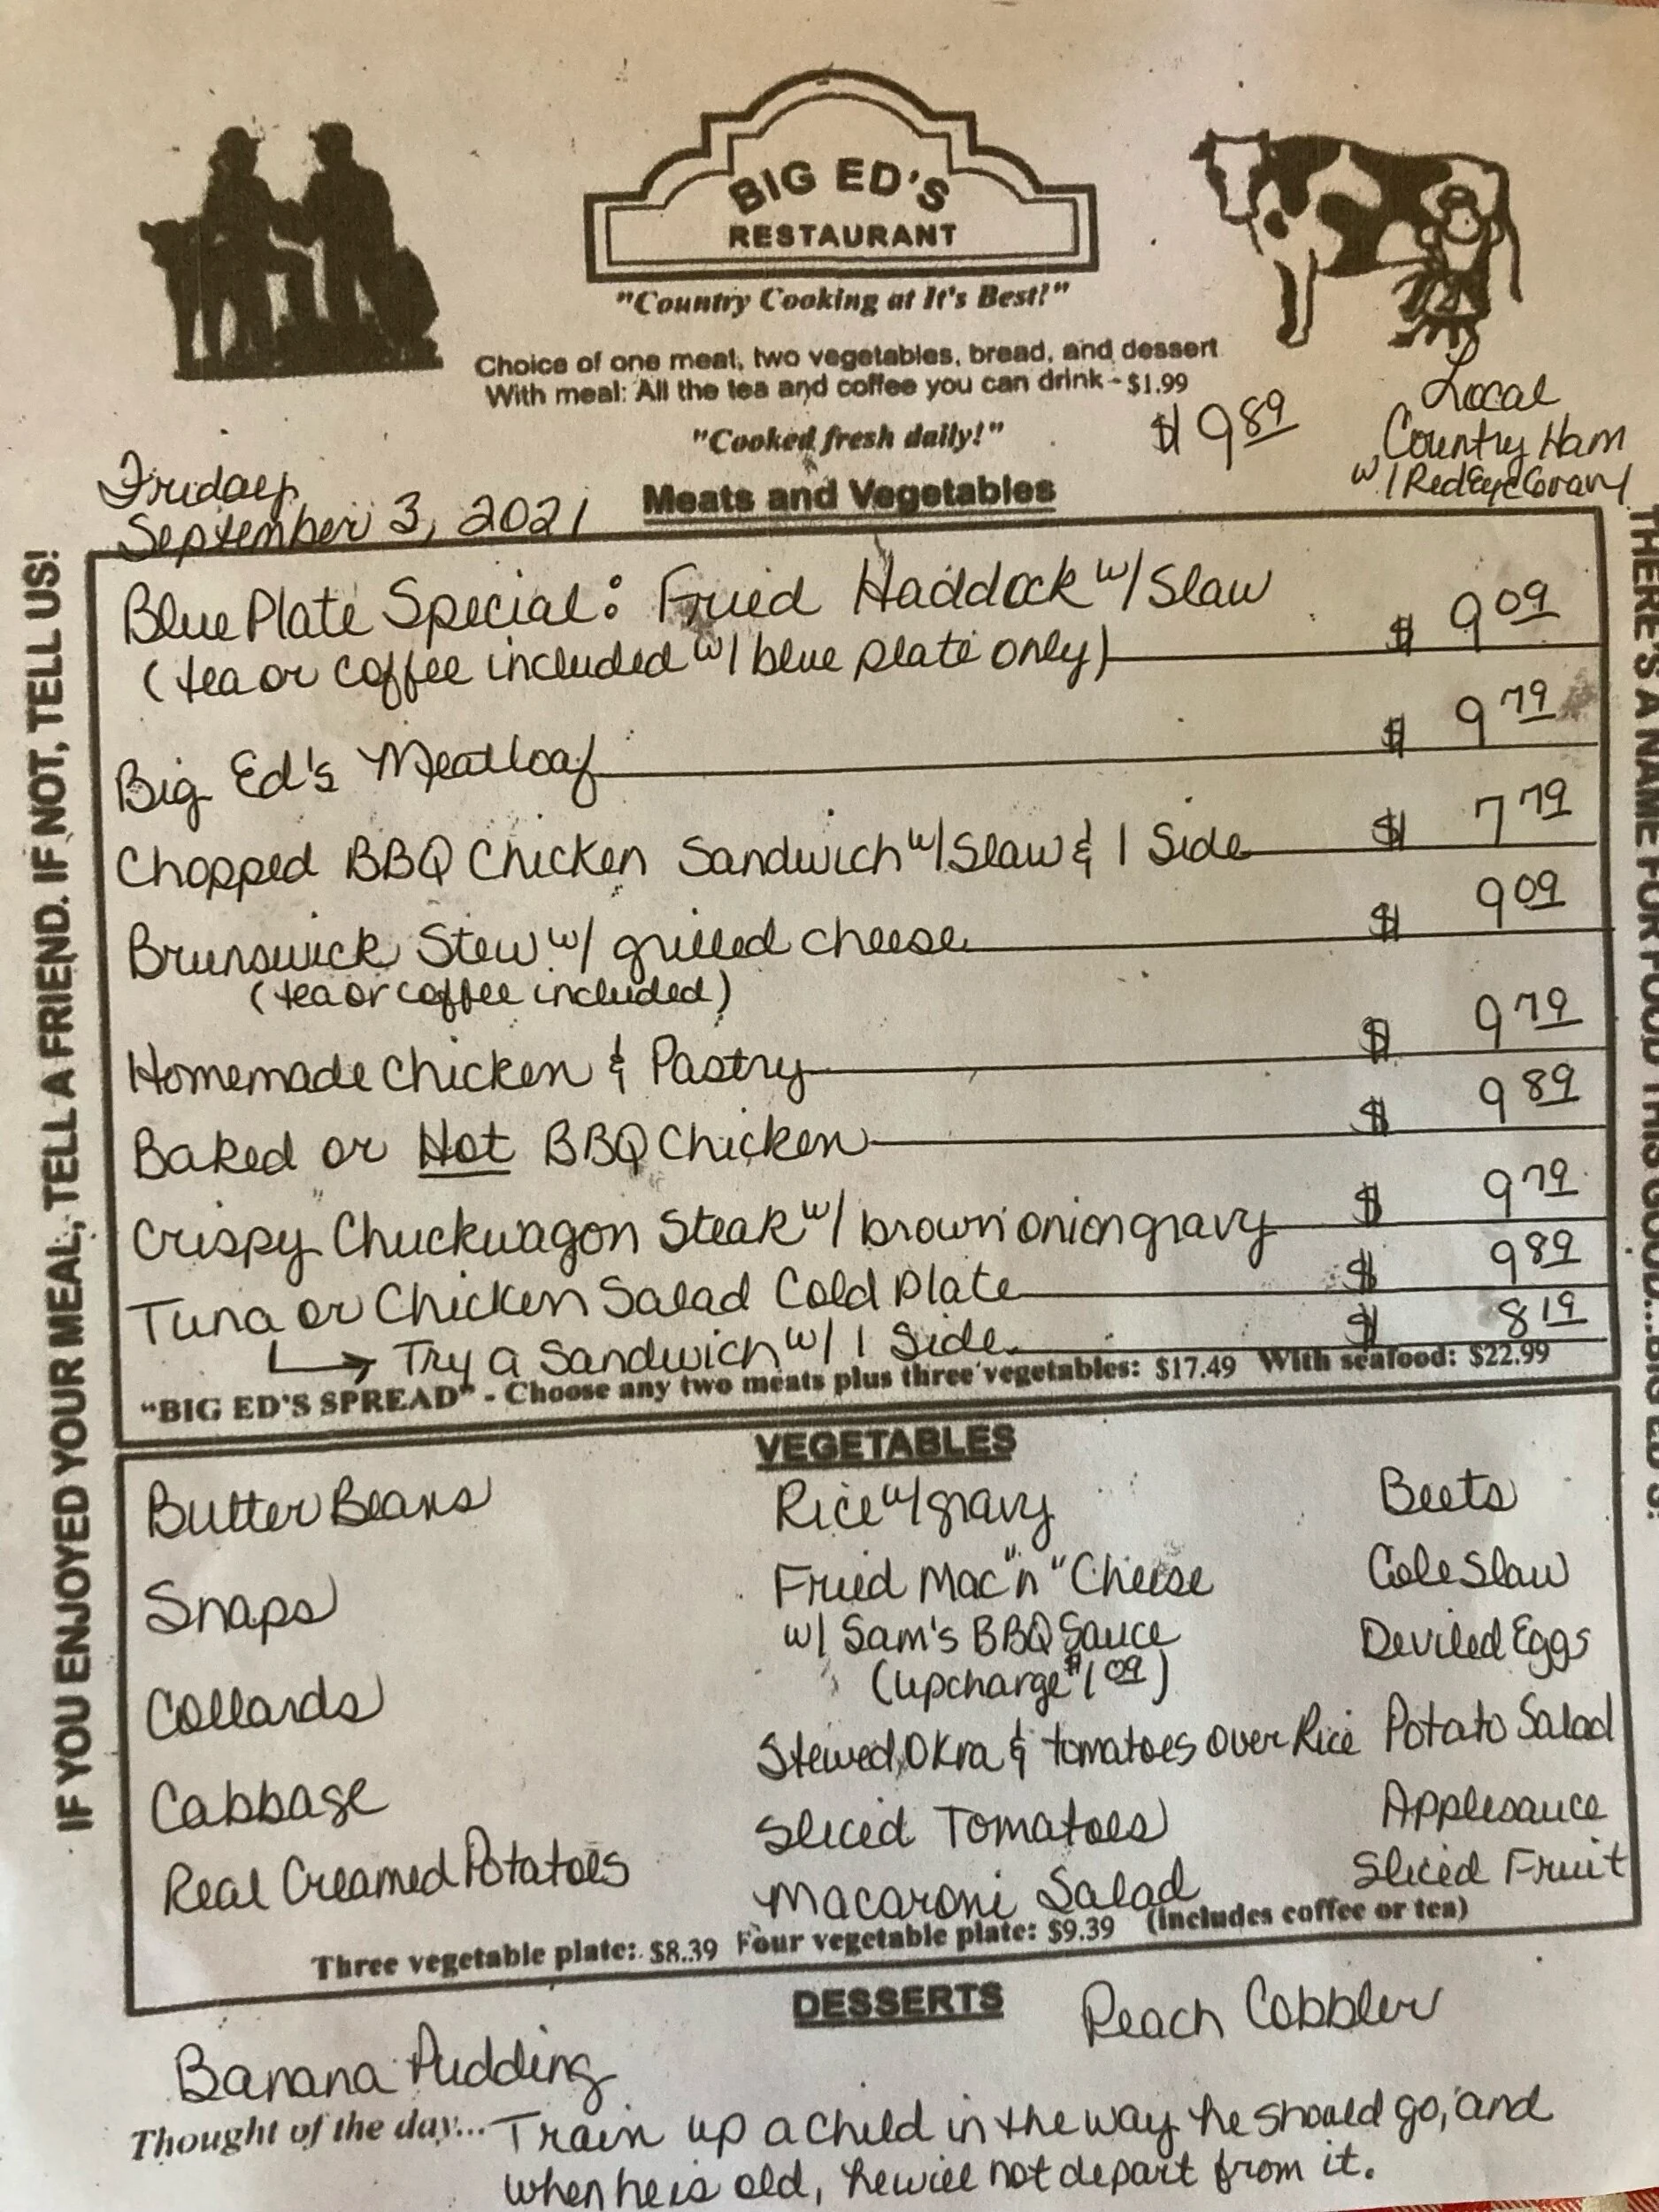 BIG ED'S
RESTAURANT
"Country Cooking at It's Best!"
Choice of one meat, two vegetables, bread, and dessert
With meal: All the tea and coffee you can drink - $1.99
"Cooked fresh daily!"
$9.89
Local
Country Ham
w/ Red Eye Gravy
Friday
September 3, 2021
Meats and Vegetables
Blue Plate Special: Fried Haddock w/ Slaw $ 9.09
(tea or coffee included w/ blue plate only)
Big Ed's Meatloaf $ 9.79
Chopped BBQ Chicken Sandwich w/ Slaw & 1 Side $ 7.79
Brunswick Stew w/ grilled cheese $ 9.09
(tea or coffee included)
Homemade Chicken & Pastry $ 9.79
Baked or Hot BBQ Chicken $ 9.89
Crispy Chuckwagon Steak w/ brown onion gravy $ 9.79
Tuna or Chicken Salad Cold Plate $ 9.89
Try a Sandwich w/ 1 Side $ 8.19
"BIG ED'S SPREAD" - Choose any two meats plus three vegetables: $17.49 With seafood: $22.99
VEGETABLES
Butter Beans
Snaps
Collards
Cabbage
Real Creamed Potatoes
Rice w/ gravy
Fried Mac "n" Cheese
w/ Sam's BBQ Sauce
(upcharge $1.09)
Stewed Okra & tomatoes over Rice
Sliced Tomatoes
Macaroni Salad
Beets
Cole Slaw
Deviled Eggs
Potato Salad
Applesauce
Sliced Fruit
Three vegetable plate: $8.39 Four vegetable plate: $9.39 (includes coffee or tea)
DESSERTS
Banana Pudding
Peach Cobbler
Thought of the day... Train up a child in the way he should go, and
when he is old, he will not depart from it.
IF YOU ENJOYED YOUR MEAL, TELL A FRIEND. IF NOT, TELL US!
THERE'S A NAME FOR FOOD THIS GOOD...BIG ED'S!